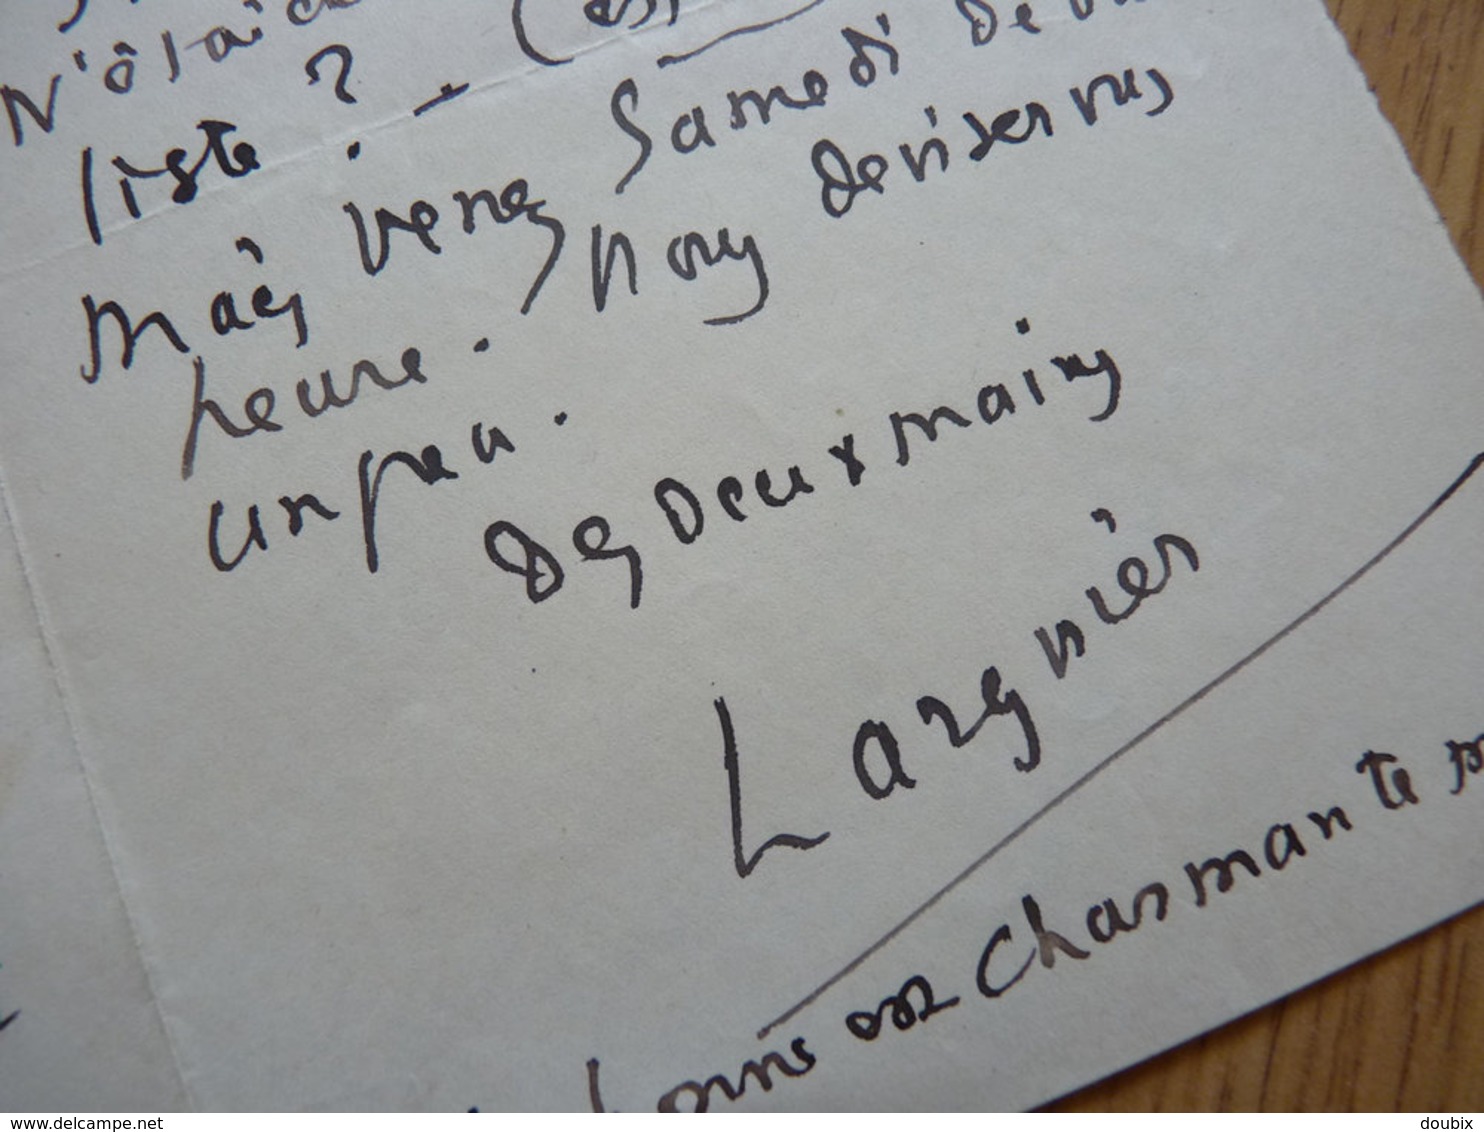 liste ? . — (
Maïs venez Samedi De
heure. Nous deviserons
un peu.
Des Deux mains
Larguier
bonne et Charmante
www.delcampe.net
doubix